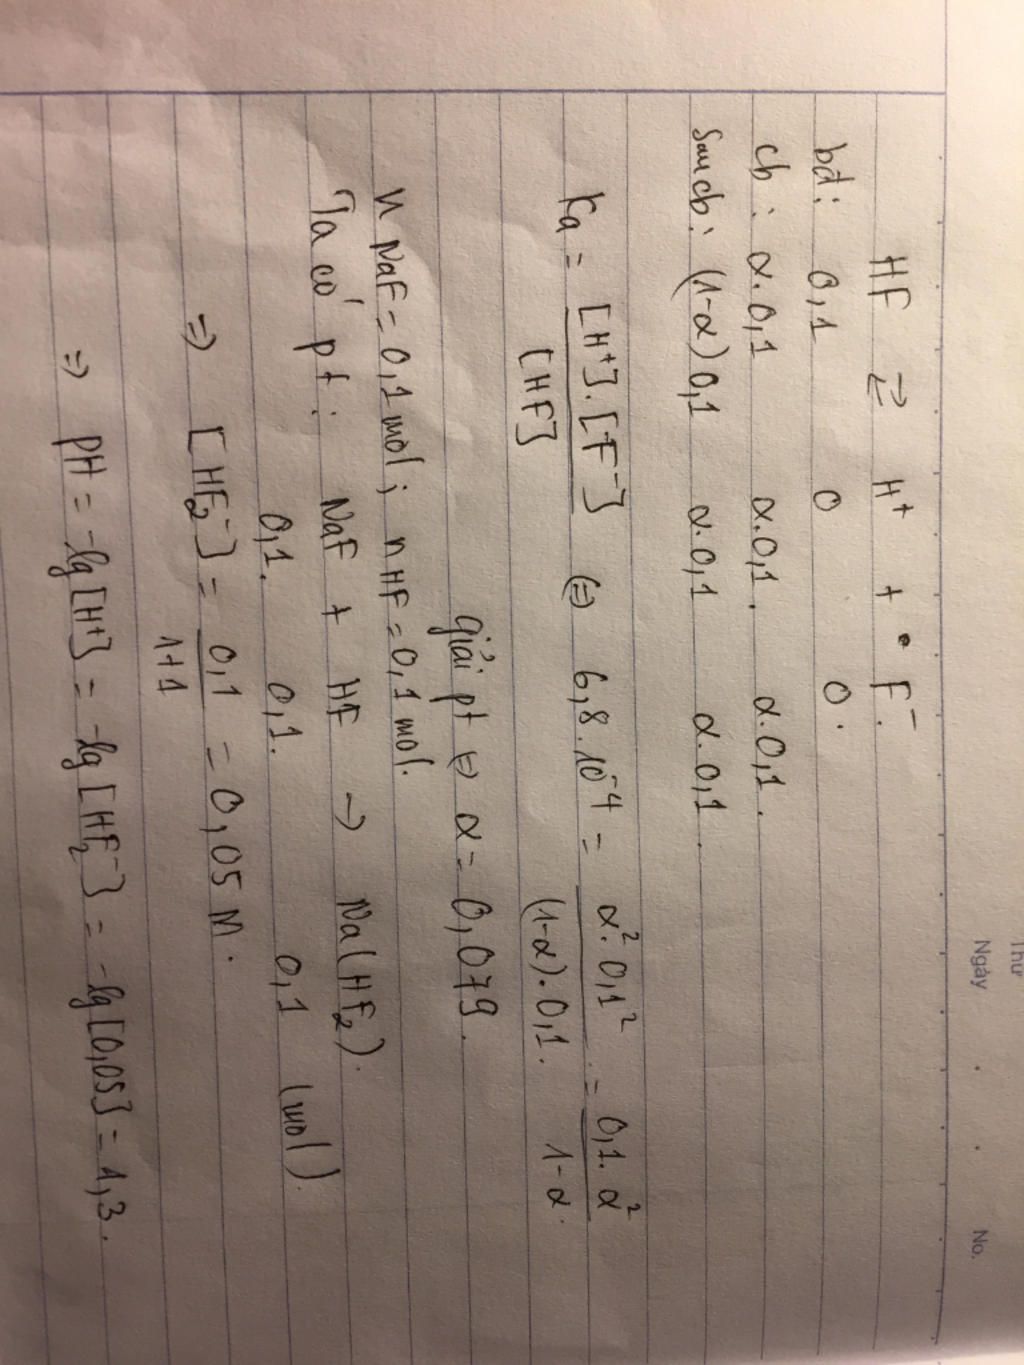 Thứ
Ngày . . No.
HF ⇌ H⁺ + F⁻.
bđ: 0,1 0 0.
cb: α.0,1 α.0,1. α.0,1.
sau cb: (1-α)0,1 α.0,1 α.0,1.
Ka = [H⁺].[F⁻] / [HF] (=) 6,8.10⁻⁴ = α².0,1² / (1-α).0,1. = 0,1.α² / 1-α.
giải pt (=) α = 0,079.
n NaF = 0,1 mol; nHF = 0,1 mol.
Ta có pt: NaF + HF → Na(HF₂).
0,1. 0,1. 0,1 (mol).
=) [HF₂⁻] = 0,1 / 1+1 = 0,05 M.
=) PH = -lg[H⁺] = -lg[HF₂⁻] = -lg[0,05] = 1,3.